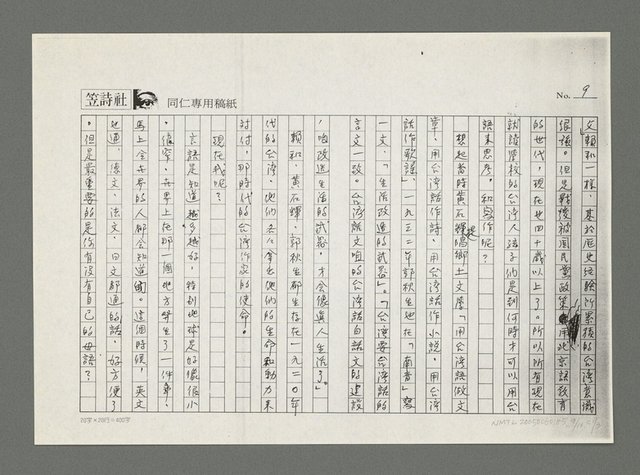 笠詩社
同仁專用稿紙
No. 9
文賴和一樣，基於歷史經驗所累積的台灣意識
很強。但是戰後被國民黨政策用北京語教育
的世代，現在也四十歲以上了。所以所有現在
就讀學校的台灣人孩子們是到何時才可以用台
語來思考，和寫作呢？
想起當時黃石輝提倡鄉土文學「用台灣話做文
章，用台灣話作詩，用台灣話作小說，用台灣
話作歌謠」，一九三二年郭秋生也在「南音」寫
一文，「生活改造的武器」。「台灣要台灣話的
言文一致。台灣話文唯的台灣話白話文的建設
，唯改造生活的武器，才會像真人生活了。」
賴和、黃石輝、郭秋生都生存在一九二〇年
代的台灣，他們各人拿出他們的生命和勸力來
討付，那時代的台灣作家的使命。
現在我呢？
言語是知道越多越好，特別地球是好像很小
，像窄，在世界上在那一個地方發生了一件事，
馬上全世界的人都會知道。這個時候，英文
也通，漢文、法文、日文都通的話，好方便了
。但是最重要的是你有沒有自己的母語？
20字×20行＝400字